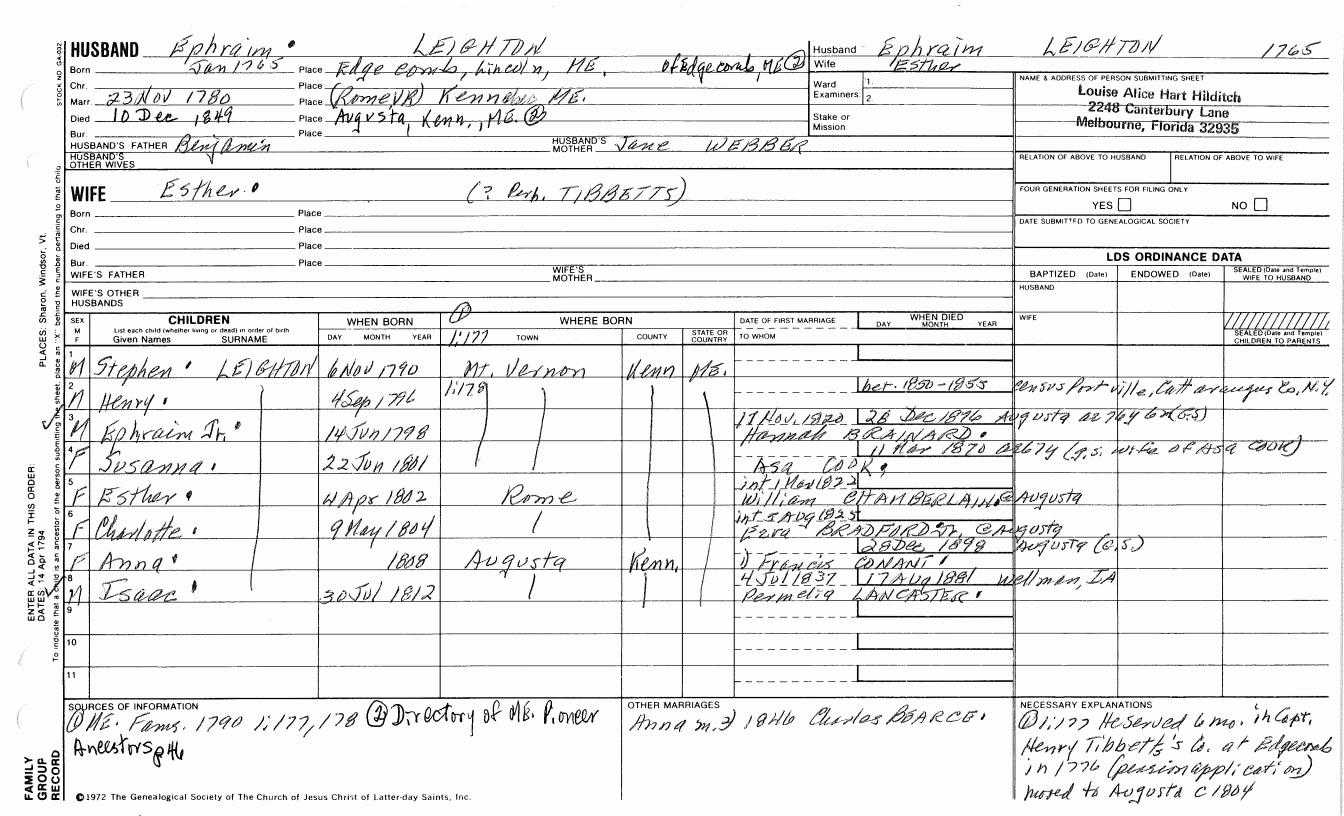 HUSBAND Ephraim LEIGHTON
Born Jan 1765 Place Edgecomb, Lincoln, ME. of Edgecomb, ME (2)
Chr. Place
Marr 23 Nov 1780 Place (Rome VR) Kennebec ME.
Died 10 Dec 1849 Place Augusta, Kenn., ME. (2)
Bur. Place
HUSBAND'S FATHER Benjamin HUSBAND'S MOTHER Jane WEBBER
HUSBAND'S OTHER WIVES
WIFE Esther (? Perh. TIBBETTS)
Born Place
Chr. Place
Died Place
Bur. Place
WIFE'S FATHER WIFE'S MOTHER
WIFE'S OTHER HUSBANDS
Husband Ephraim LEIGHTON 1765
Wife Esther
Ward 1
Examiners 2
Stake or Mission
NAME & ADDRESS OF PERSON SUBMITTING SHEET
Louise Alice Hart Hilditch
2248 Canterbury Lane
Melbourne, Florida 32935
RELATION OF ABOVE TO HUSBAND RELATION OF ABOVE TO WIFE
FOUR GENERATION SHEETS FOR FILING ONLY
YES NO
DATE SUBMITTED TO GENEALOGICAL SOCIETY
LDS ORDINANCE DATA
BAPTIZED (Date) ENDOWED (Date) SEALED (Date and Temple) WIFE TO HUSBAND
HUSBAND
WIFE
SEALED (Date and Temple) CHILDREN TO PARENTS
SEX M F CHILDREN WHEN BORN (1) WHERE BORN DATE OF FIRST MARRIAGE WHEN DIED
List each child (whether living or dead) in order of birth
Given Names SURNAME DAY MONTH YEAR 1:177 TOWN COUNTY STATE OR COUNTRY TO WHOM DAY MONTH YEAR
1 M Stephen LEIGHTON 6 Nov 1790 Mt. Vernon Kenn ME.
2 M Henry 4 Sep 1796 1:178 bet. 1850-1855 census Portville, Cattaraugus Co, N.Y.
3 M Ephraim Jr. 14 Jun 1798 17 Nov. 1820 28 Dec 1876 Augusta ae 76y 6m (G.S)
Hannah BRAINARD
4 F Susanna 22 Jun 1801 11 Mar 1870 ae 67y (g.s. wife of Asa COOK)
Asa COOK
5 F Esther 4 Apr 1802 Rome int 1 Mar 1822
William CHAMBERLAIN @ Augusta
6 F Charlotte 9 May 1804 int 5 Aug 1825
Ezra BRADFORD Jr. @ Augusta
7 F Anna 1808 Augusta Kenn. 28 Dec 1898 Augusta (G.S.)
1) Francis CONANT
8 M Isaac 30 Jul 1812 4 Jul 1837 17 Aug 1881 Wellman, IA
Permelia LANCASTER
9
10
11
SOURCES OF INFORMATION
(1) ME. Fams. 1790 1:177, 178 (2) Directory of ME. Pioneer
Ancestors p 46
OTHER MARRIAGES
Anna m. 2) 1846 Charles BEARCE.
NECESSARY EXPLANATIONS
(1) 1:177 He served 6 mo. in Capt.
Henry Tibbetts's Co. at Edgecomb
in 1776 (pension application)
moved to Augusta c 1804
©1972 The Genealogical Society of The Church of Jesus Christ of Latter-day Saints, Inc.
STOCK NO. GA-032
PLACES: Sharon, Windsor, Vt.
ENTER ALL DATA IN THIS ORDER:
DATES: 14 Apr 1794
To indicate that a child is an ancestor of the person submitting the sheet, place an "X" behind the number pertaining to that child.
FAMILY
GROUP
RECORD